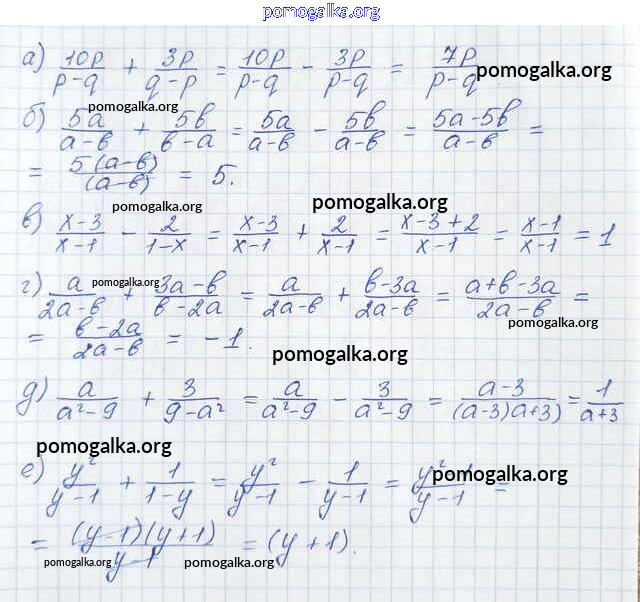 pomogalka.org
а) 10p/(p-q) + 3p/(q-p) = 10p/(p-q) - 3p/(p-q) = 7p/(p-q) pomogalka.org
pomogalka.org
б) 5a/(a-b) + 5b/(b-a) = 5a/(a-b) - 5b/(a-b) = (5a-5b)/(a-b) =
= 5(a-b)/(a-b) = 5.
pomogalka.org pomogalka.org
в) (x-3)/(x-1) - 2/(1-x) = (x-3)/(x-1) + 2/(x-1) = (x-3+2)/(x-1) = (x-1)/(x-1) = 1
pomogalka.org
г) a/(2a-b) + (3a-b)/(b-2a) = a/(2a-b) + (b-3a)/(2a-b) = (a+b-3a)/(2a-b) =
pomogalka.org
= (b-2a)/(2a-b) = -1.
pomogalka.org
д) a/(a²-9) + 3/(9-a²) = a/(a²-9) - 3/(a²-9) = (a-3)/((a-3)(a+3)) = 1/(a+3)
pomogalka.org
е) y²/(y-1) + 1/(1-y) = y²/(y-1) - 1/(y-1) = (y²-1)/(y-1) =
pomogalka.org
= (y-1)(y+1)/(y-1) = (y+1).
pomogalka.org pomogalka.org